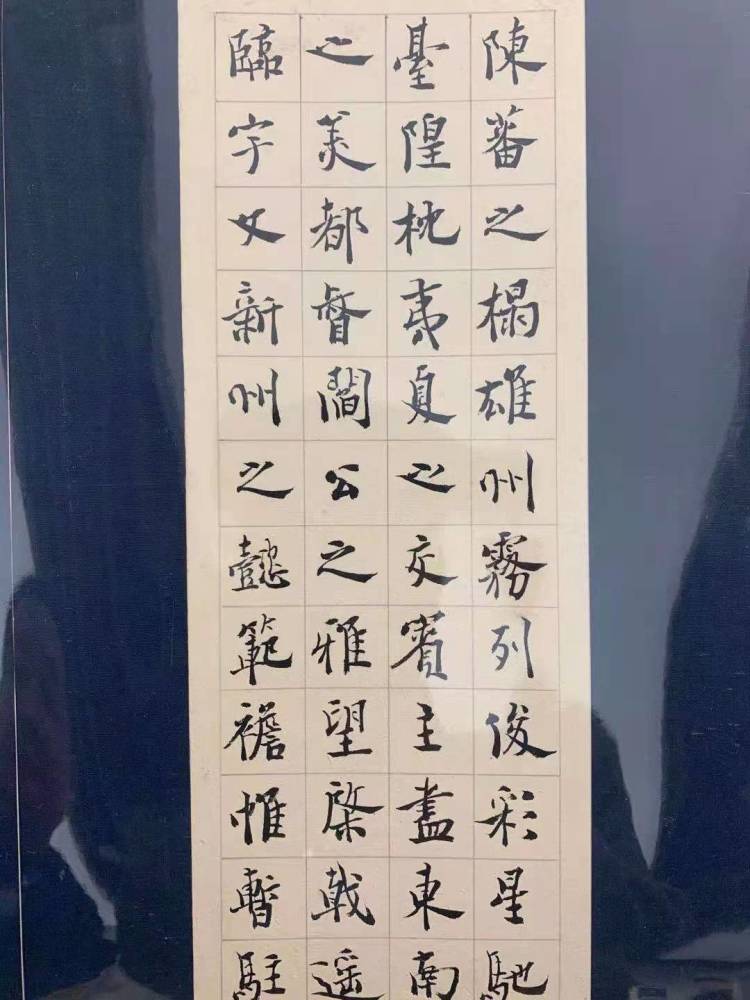 陳蕃之榻雄州霧列俊彩星馳
臺隍枕夷夏之交賓主盡東南
之美都督閻公之雅望棨戟遥
臨宇文新州之懿範襜帷暫駐